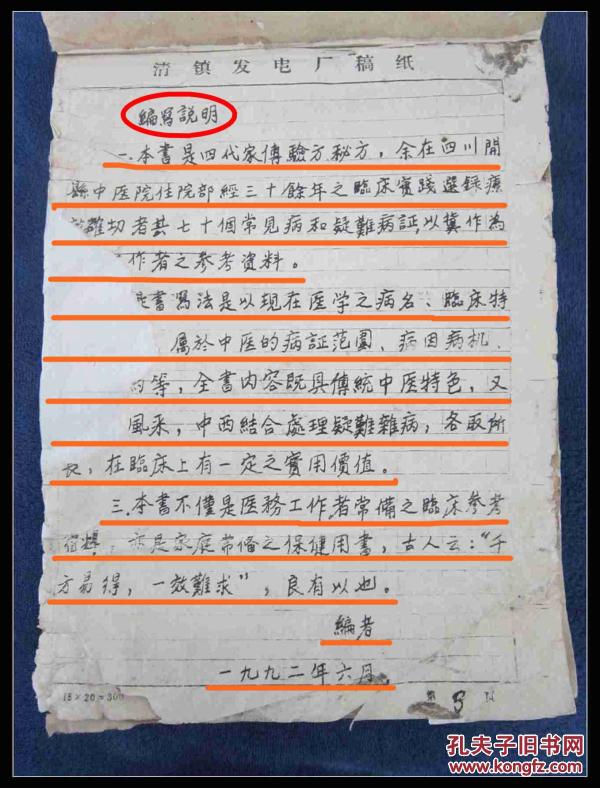 清镇发电厂稿纸
編寫說明
一.本書是四代家傳驗方秘方,余在四川開
縣中医院住院部經三十餘年之臨床實踐選錄療
確切者共七十個常見病和疑難病証,以冀作為
作者之參考資料。
書寫法是以現在医学之病名、臨床特
屬於中医的病証范圍、病因病机、
等,全書内容既具傳統中医特色,又
風采,中西結合處理疑難雜病,各取所
長,在臨床上有一定之實用價值。
三.本書不僅是医務工作者常備之臨床參考
資料,亦是家庭常備之保健用書,古人云:“千
方易得,一效難求”,良有以也。
編者
一九九二年六月
15×20=300
第 3 页
孔夫子旧书网
www.kongfz.com